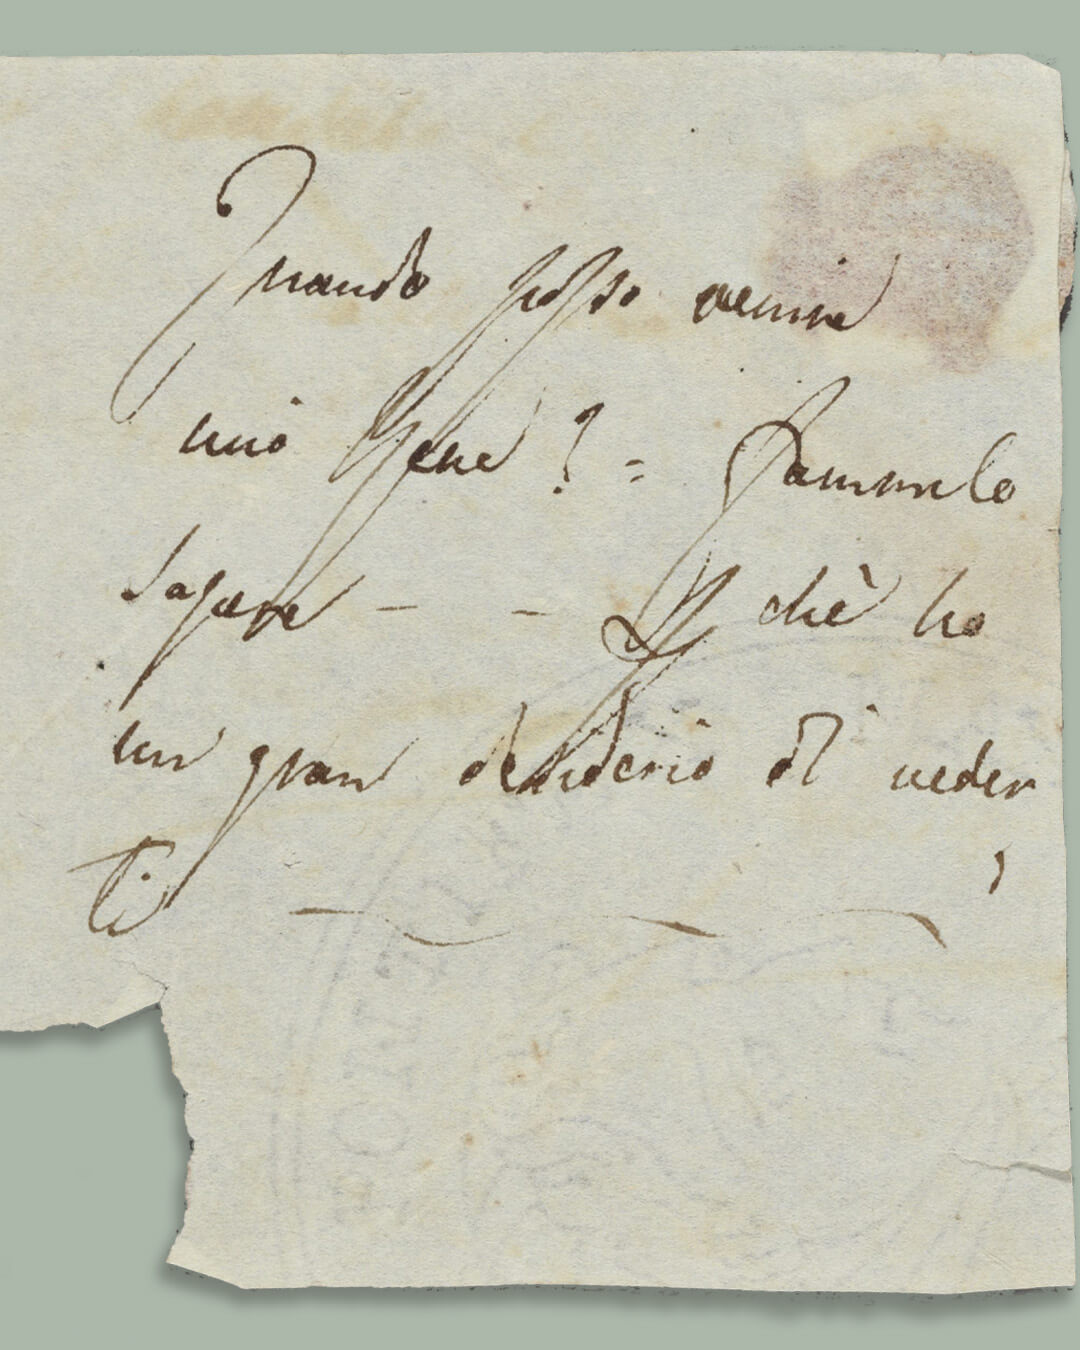 Quando posso venire
mio bene? = Fammelo
sapere - - Perchè ho
un gran desiderio di veder
ti